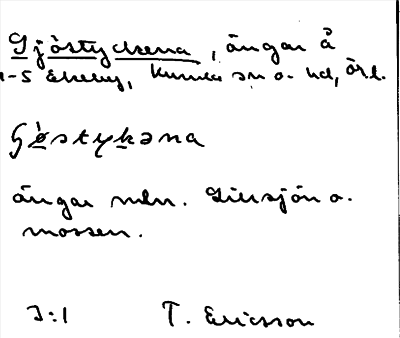 Gjöstyckena, ängar å
1-5 Ekeby, Kumla sn o. hd, Örl.
Gø̀stykəna
ängar mln. Lillsjön o.
mossen.
J:1 T. Ericsson